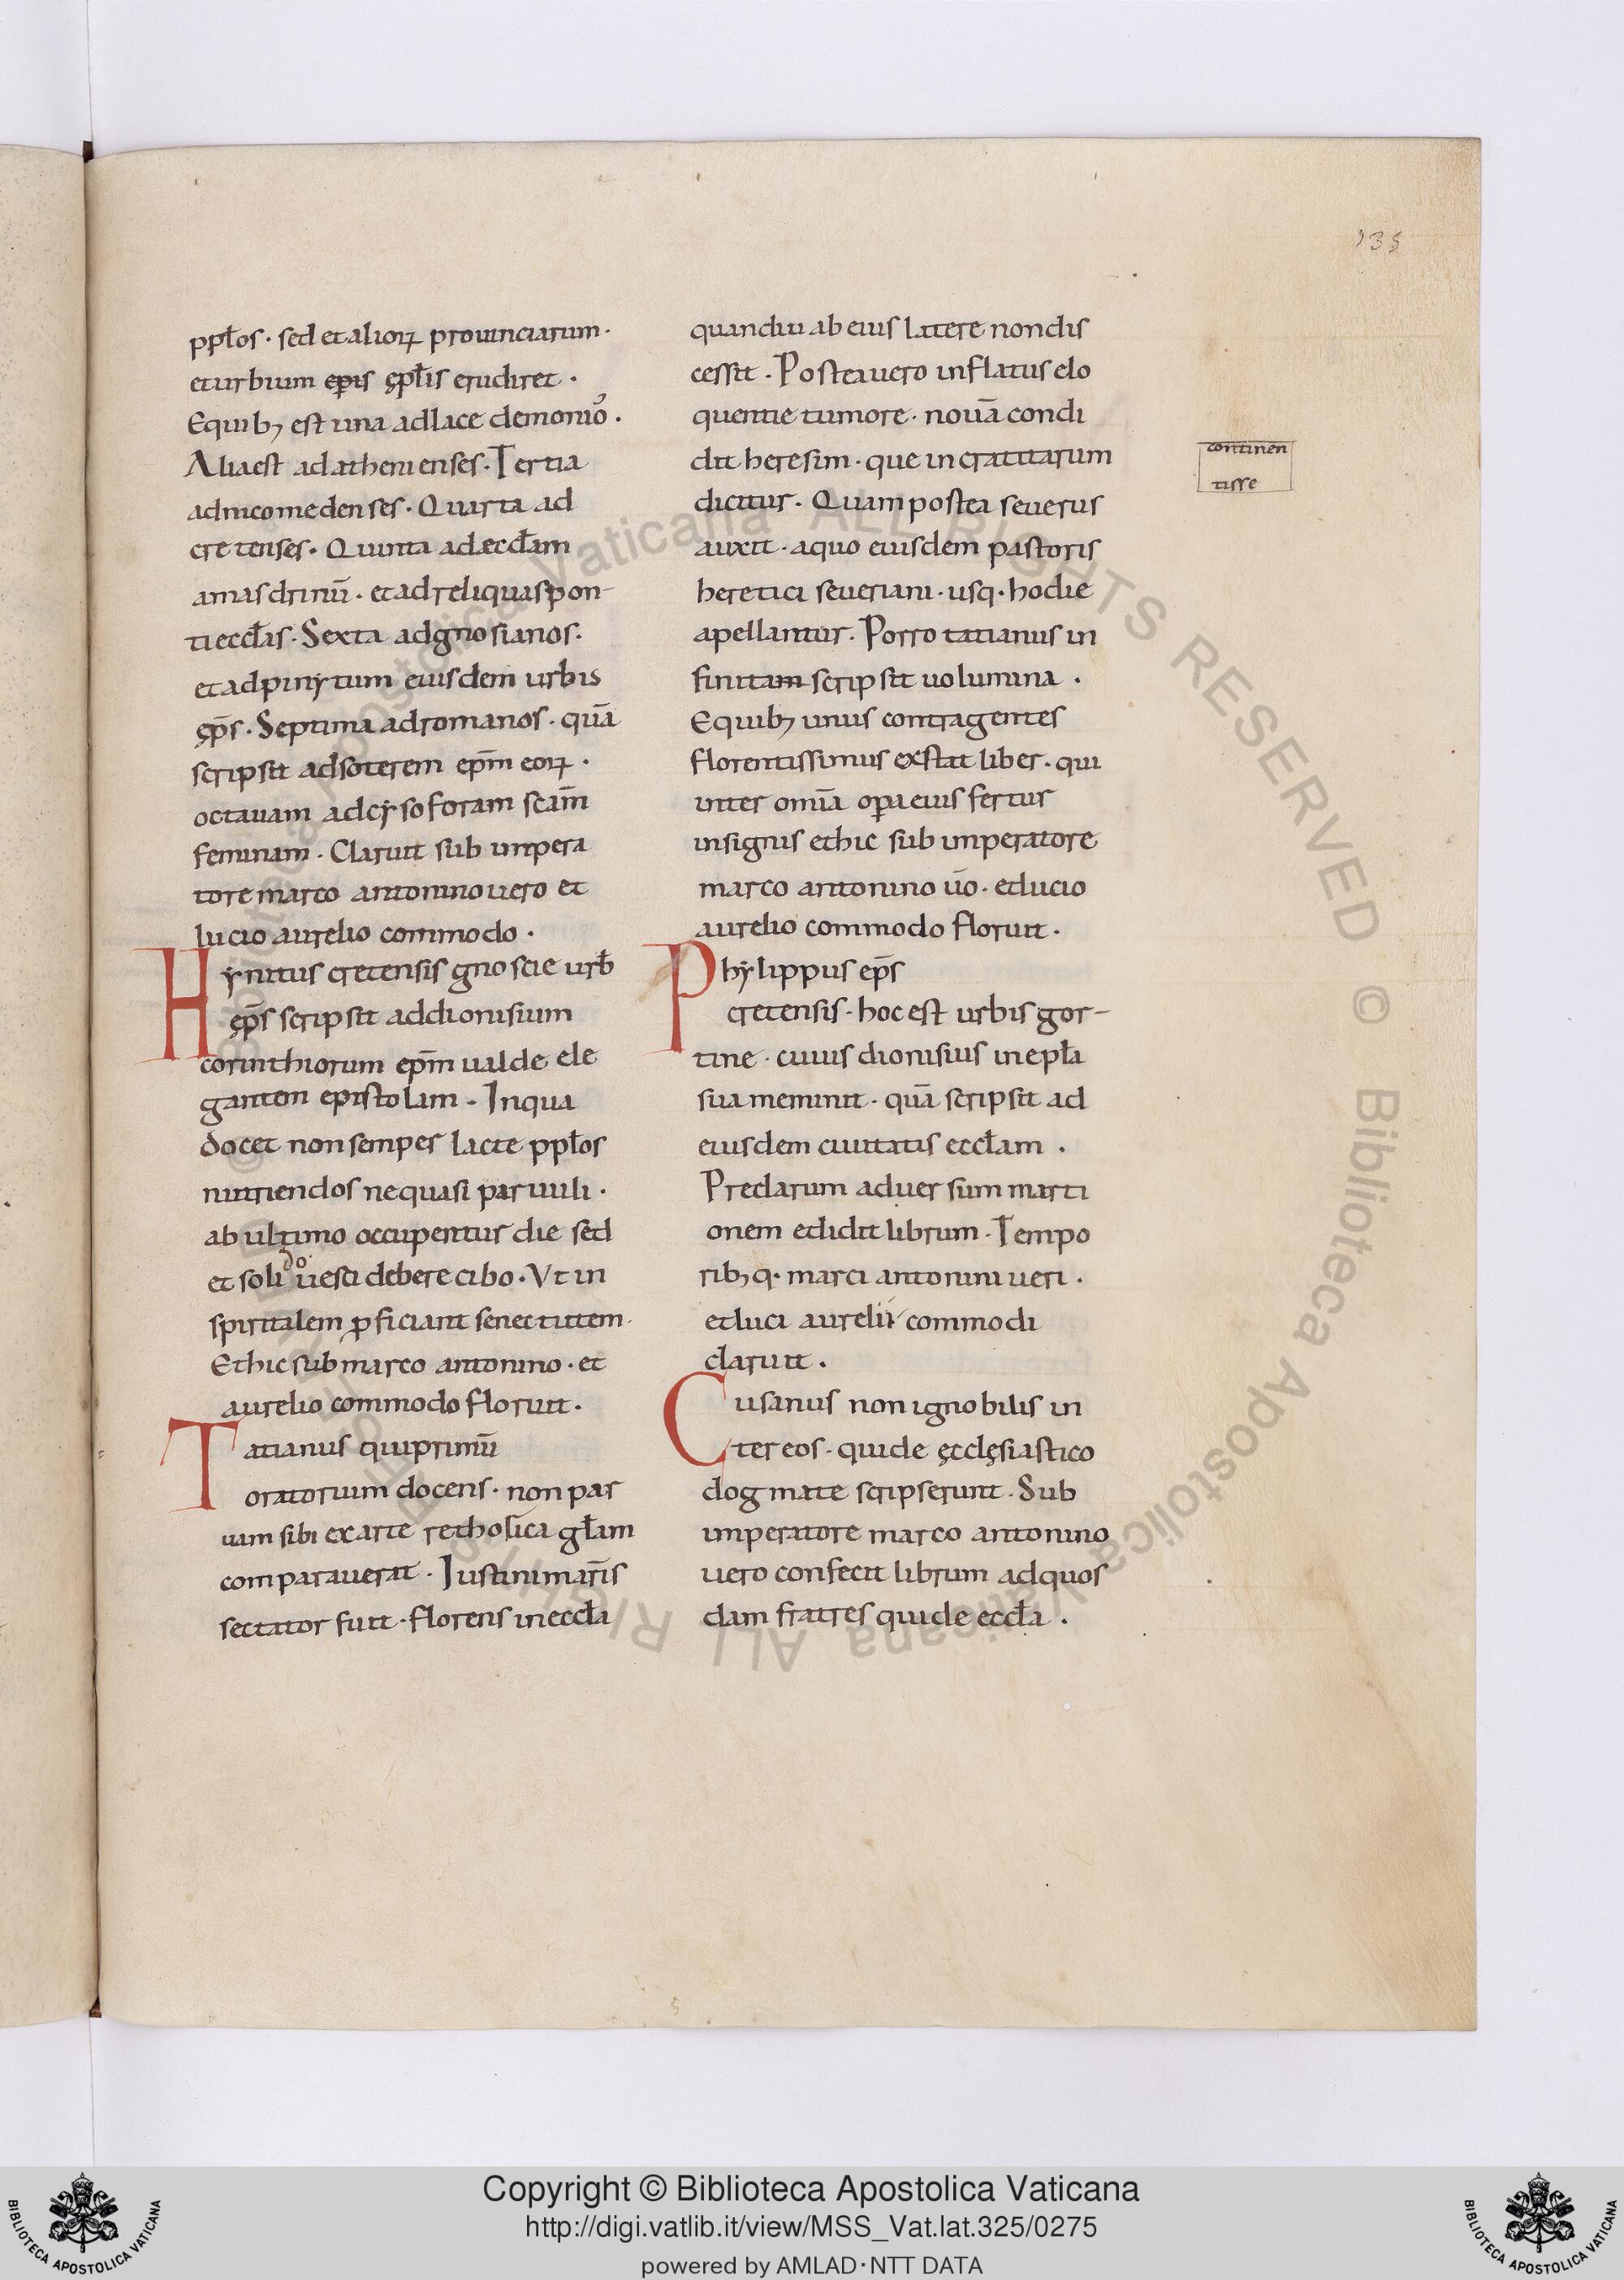 135
ppl̄os · sed et alioꝝ prouinciarum ·
et urbium epis ępl̄is erudiret ·
Equibꝫ est una ad lacedemonios̄ ·
Alia est ad athenienses · Tertia
ad nicomedenses · Quarta ad
cretenses · Quinta ad eccl̄am
amasdrinū · et ad reliquas pon-
ti eccl̄as · Sexta ad gnosianos ·
et ad pinytum eiusdem urbis
ęp̄s · Septima ad romanos · quā
scripsit ad soterem ep̄m eoꝝ ·
octauam ad cẏsoforam scām
feminam · Claruit sub impera
tore marco antonino uero et
lucio aurelio commodo ·
Hẏnitus cretensis gnoscie urb̄
ęp̄s scripsit ad dionisium
corinthiorum ep̄m ualde ele
gantem epistolam · Inqua
docet non semper lacte ppl̄os
nutriendos ne quasi paruuli ·
ab ultimo occupentur die sed
et soli do uesci debere cibo · Ut in
spiritalem ꝓficiant senectutem ·
Et hic sub marco antonino · et
aurelio commodo floruit ·
Tatianus qui primū
oratorium docens · non par
uam sibi ex arte rethorica gl̄am
comparauerat · Iustini mar̄is
sectator fuit · florens in eccl̄a
quandiu ab eius latere non dis
cessit · Postea uero inflatus elo
quentie tumore · nouā condi
dit heresim · que incratitarum
dicitur · Quam postea seuerus
auxit · a quo eiusdem pastoris
heretici seueriani · usq · hodie
apellantur · Porro tatianus in
finitam scripsit uolumina ·
Equibꝫ unus contra gentes
florentissimus exstat liber · qui
inter omīa oꝑa eius fertur
insignis et hic sub imperatore
marco antonino ūo · et lucio
aurelio commodo floruit ·
Phẏlippus ep̄s
cretensis · hoc est urbis gor-
tine · cuius dionisius in epl̄a
sua meminit · quā scripsit ad
eiusdem ciuitatis eccl̄am ·
Preclarum aduersum marti
onem edidit librum · Tempo
ribꝫ q · marci antonini ueri ·
et luci aurelii commodi
claruit ·
Cusanus non ignobilis in
ter eos · qui de ęcclęsiastico
dogmate scripserunt · Sub
imperatore marco antonino
uero confecit librum ad quos
dam fratres qui de eccl̄a ·
continen
tisse
Copyright © Biblioteca Apostolica Vaticana
http://digi.vatlib.it/view/MSS_Vat.lat.325/0275
powered by AMLAD·NTT DATA
BIBLIOTECA APOSTOLICA VATICANA
BIBLIOTECA APOSTOLICA VATICANA
© Biblioteca Apostolica Vaticana ALL RIGHTS RESERVED © Biblioteca Apostolica Vaticana ALL RIGHTS RESERVED